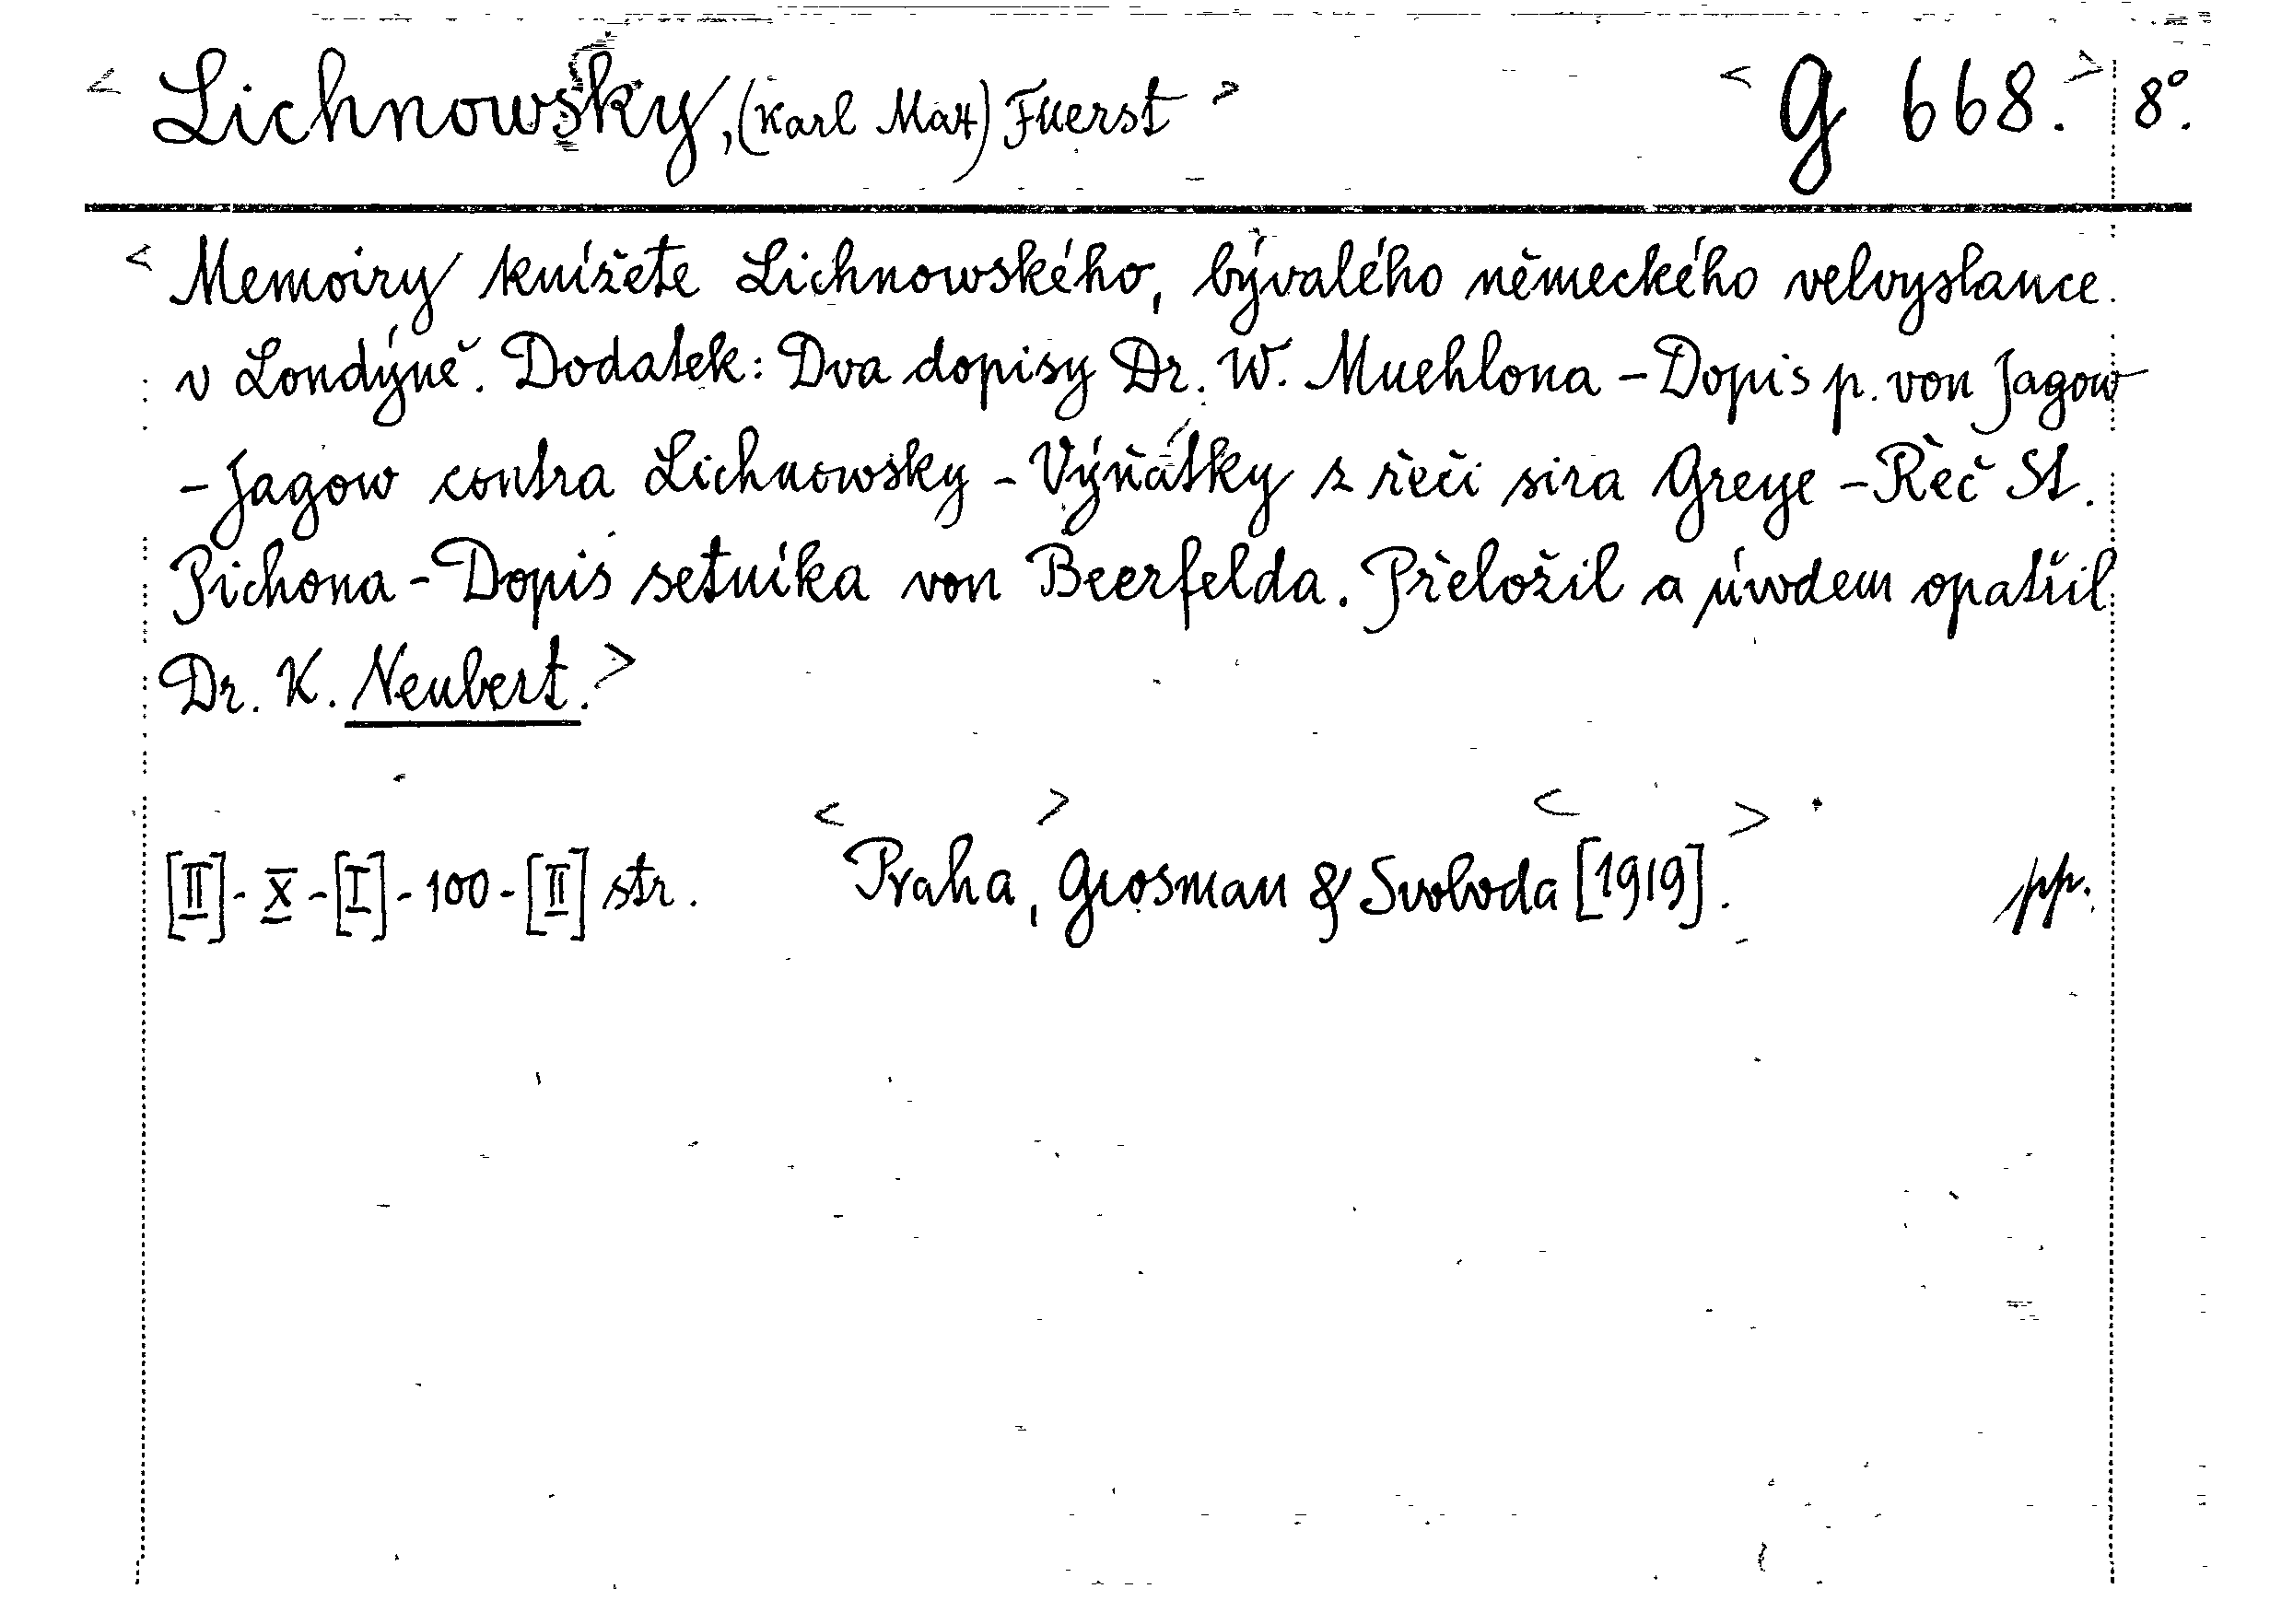 < Lichnowsky, (Karl Max) Fuerst > < G 668. > 8°.
< Memoiry knížete Lichnowského, bývalého německého velvyslance
v Londýně. Dodatek: Dva dopisy Dr. W. Muehlona – Dopis p. von Jagow
– Jagow contra Lichnowsky – Výňátky z řeči sira Greye – Řeč St.
Pichona – Dopis setníka von Beerfelda. Přeložil a úvodem opatřil
Dr. K. Neubert. >
[II] - X - [I] - 100 - [II] str. < Praha, > Grosman & Svoboda < [1919]. > pp.